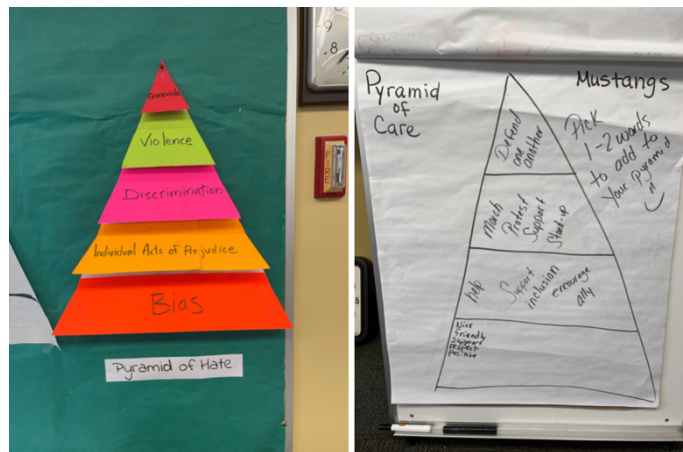 Genocide
Violence
Discrimination
Individual Acts of Prejudice
Bias
Pyramid of Hate
Pyramid
of
Care
Mustangs
Pick
1-2 words
to add to
your pyramid
Defend
one
another
March
Protest
Support
Stand-up
help
Support
inclusion
encourage
ally
Nice
friendly
support
respect
positive